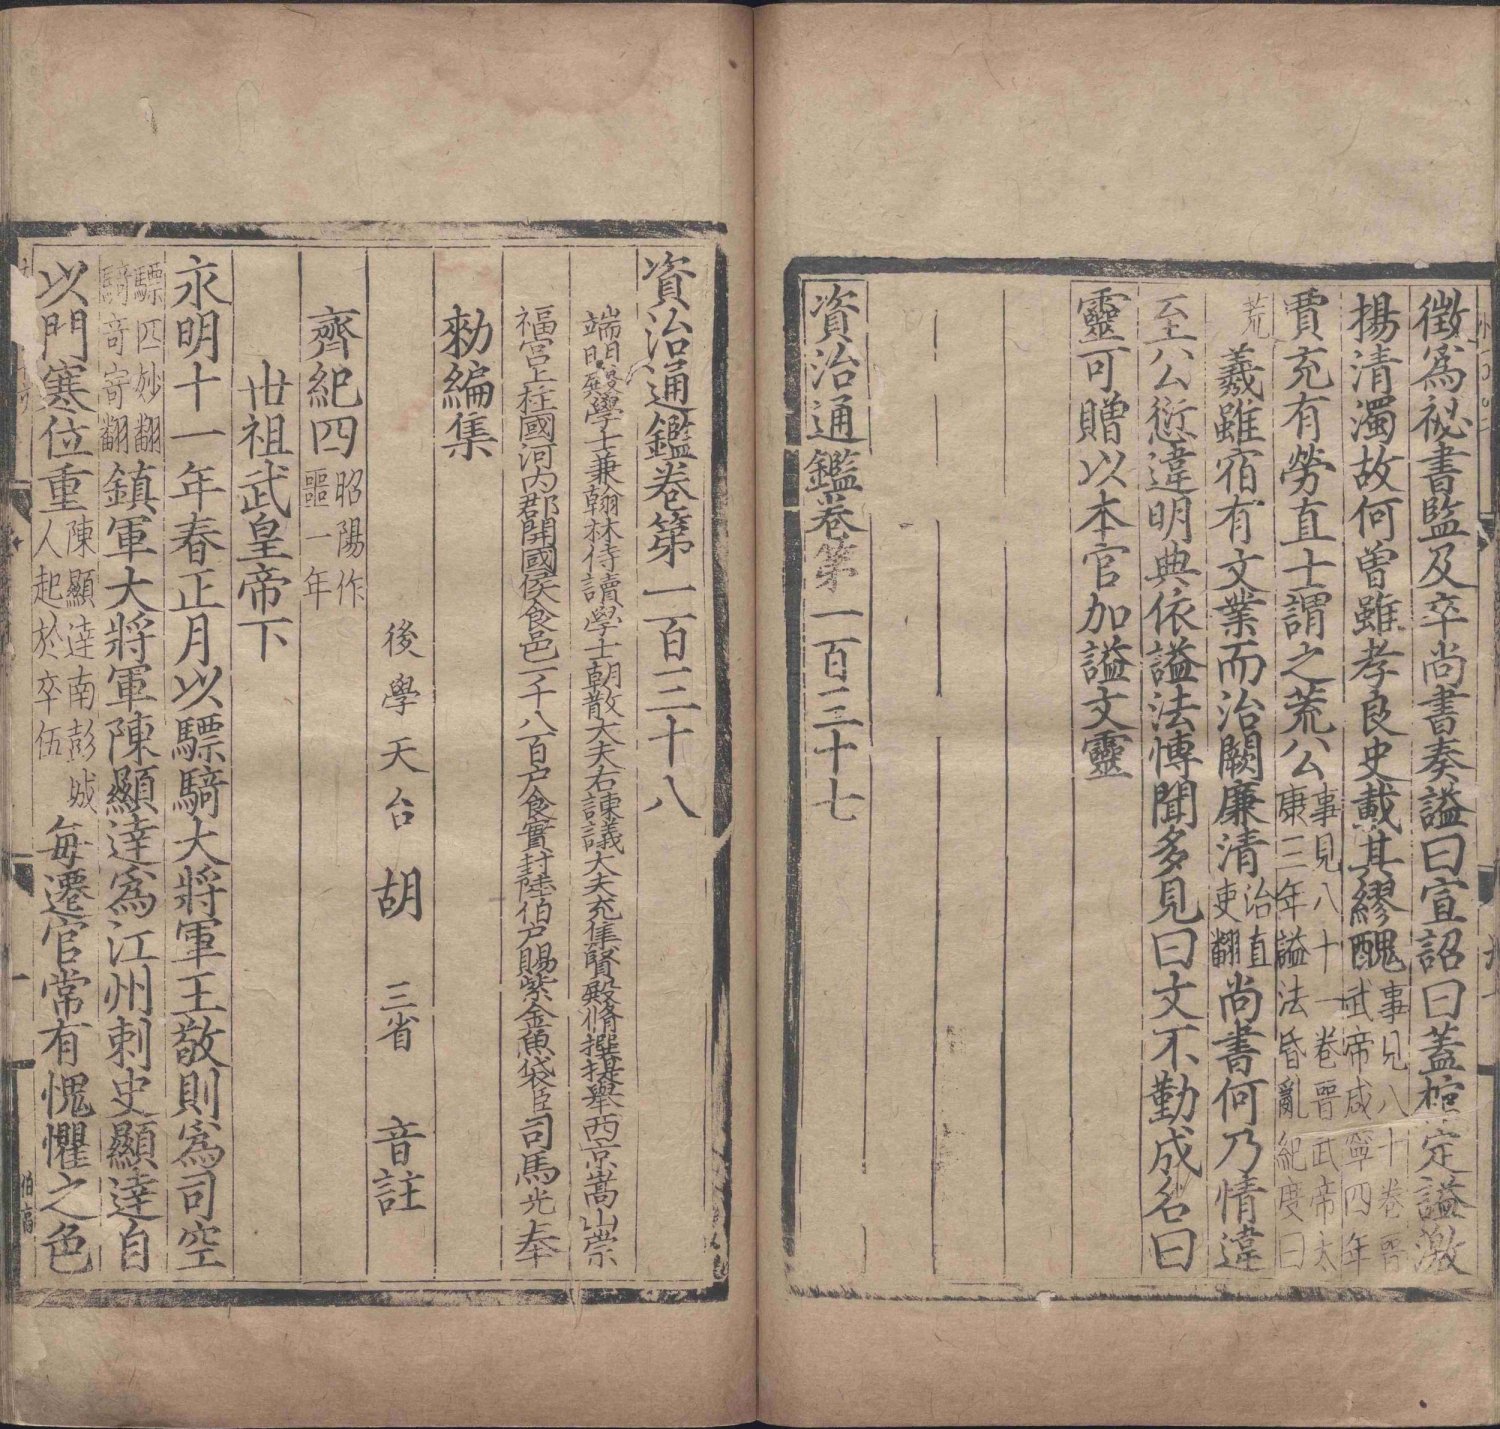 徵爲祕書監及卒尚書奏謚曰宣詔曰蓋棺定謚激
揚清濁故何曾雖孝良史載其繆醜事見八十卷晉武帝咸寧四年
賈充有勞直士謂之荒公事見八十一卷晉武帝太康三年謚法昏亂紀度曰
荒羲雖宿有文業而治闕廉清治直吏翻尚書何乃情違
至公愆違明典依謚法慱聞多見曰文不勤成名曰
靈可贈以本官加謚文靈
資治通鑑卷第一百三十七
資治通鑑卷第一百三十八
端明殿學士兼翰林侍讀學士朝散大夫右諫議大夫充集賢殿脩撰提舉西京嵩山崇
福宮上柱國河內郡開國侯食邑一千八百户食實封陸伯户賜紫金魚袋臣司馬光奉
勑編集
後學天台胡三省音註
齊紀四昭陽作噩一年
世祖武皇帝下
永明十一年春正月以驃騎大將軍王敬則爲司空
驃匹妙翻騎奇寄翻鎮軍大將軍陳顯達爲江州刺史顯達自
以門寒位重陳顯達南彭城人起於卒伍每遷官常有愧懼之色
伯高